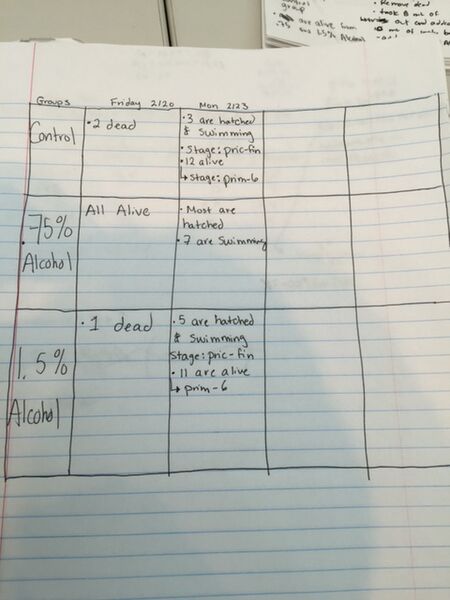 group
are alive from
.75 and 1.5% Alcohol
• Remove dead
• took 8 mL of
out and added
8 mL of
Groups
Friday 2/20
Mon 2/23
Control
• 2 dead
• 3 are hatched
& Swimming
• Stage: pric-fin
• 12 alive
↳ Stage: prim-6
.75%
Alcohol
All Alive
• Most are
hatched
• 7 are Swimming
1.5%
Alcohol
• 1 dead
• 5 are hatched
& Swimming
Stage: pric-fin
• 11 are alive
↳ prim-6